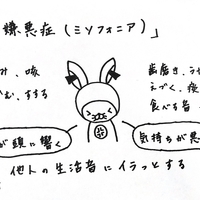 嫌悪症（ミソフォニア）」
み、咳
む、すする
歯磨き、う
えづく、痰
食べる音
が頭に響く
気持ちが悪
他人の生活音にイラっとする